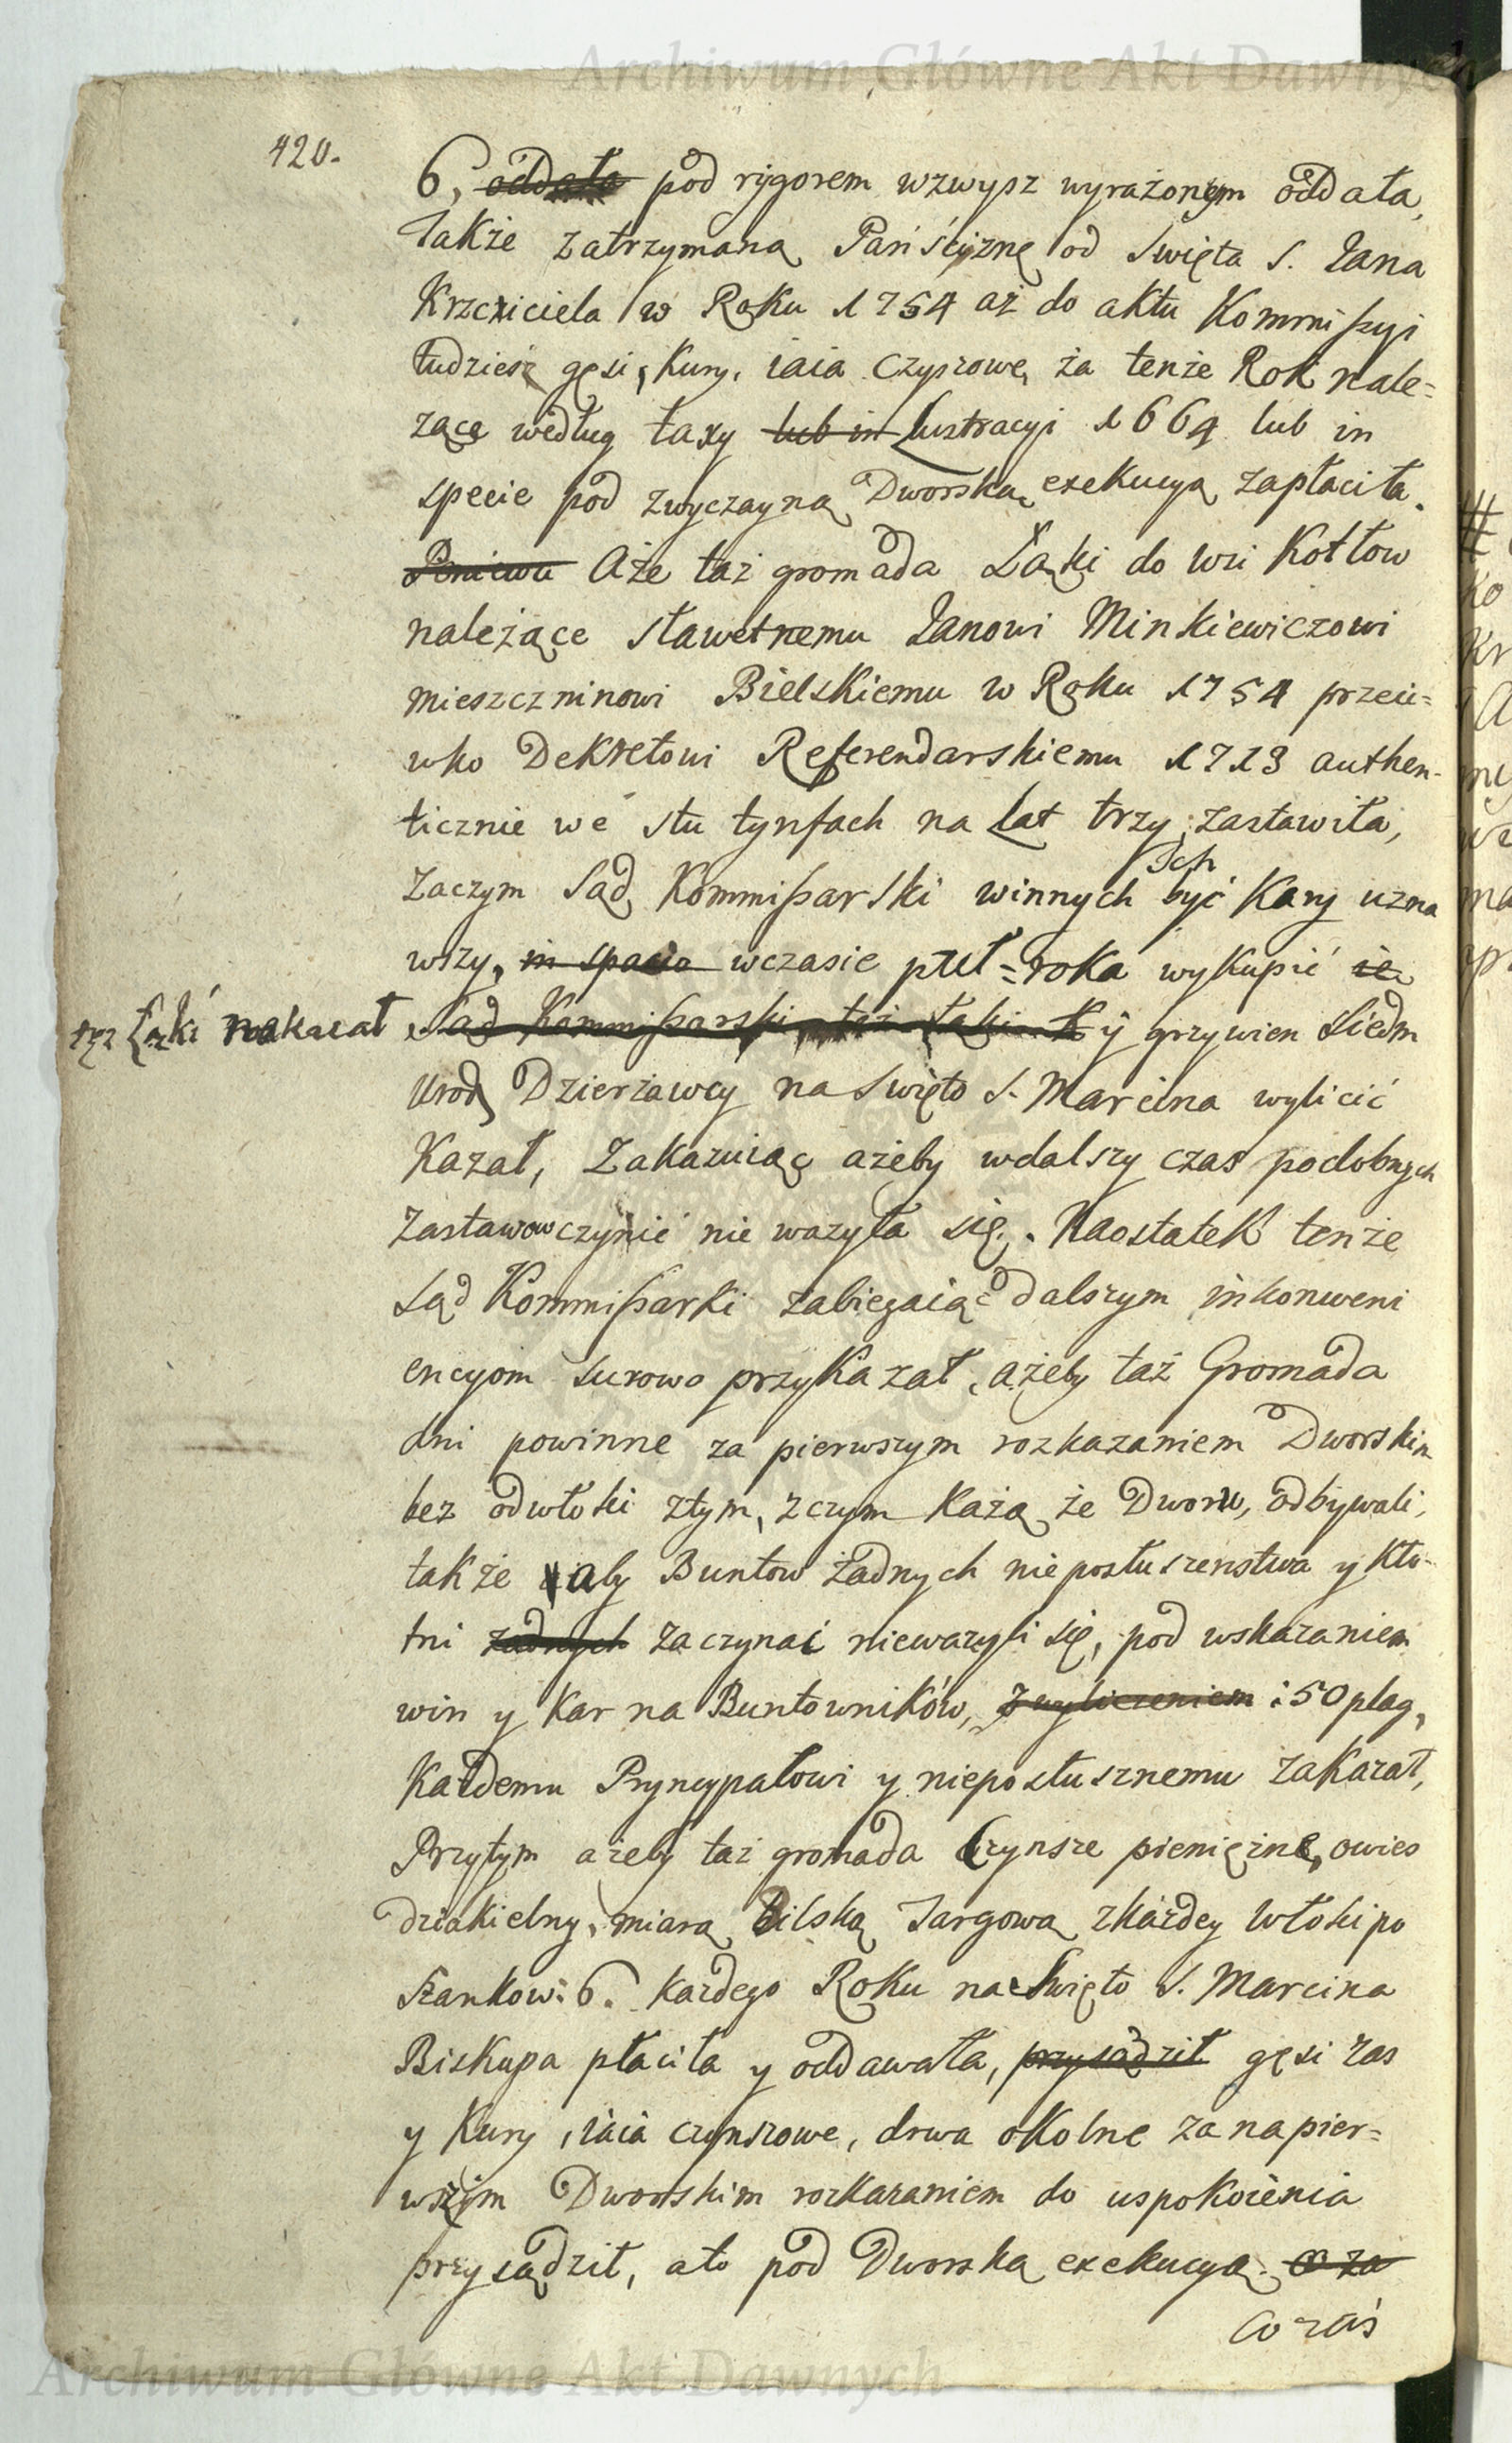 Archiwum Główne Akt Dawnych
420.
6, oddała pod rygorem wzwysz wyrażonym oddała,
Także zatrzymaną Pańściznę od Swięta S. Jana
Krzciciela w Roku 1754 aż do aktu Kommissyi
tudziesz gęsi, Kury, iaia Czynszowe, za tenże Rok nale=
żące według taxy lub in Lustracyi 1664 lub in
specie pod zwyczayną Dworską exekucyą zapłaciła.
Aże taż gromada Łąki do wsi Kotłow
należące sławetnemu Janowi Minkiewiczowi
mieszczninowi Bielskiemu w Roku 1754 przeci=
wko Dekretowi Referendarskiemu 1713 authen-
ticznie we stu tynfach na Lat trzy zastawiła,
Zaczym Sąd Kommissarski winnych Ich być Kary uzna
wszy, in spacio wczasie puł=roka wykupić ie
tęż Łąki nakazał Sąd Kommissarski też Łąki y grzywien Siedm
Urod Dzierżawcy na Swięto S. Marcina wyliczić
Kazał, Zakazuiąc ażeby wdalszy czas podobnych
Zastawow czynić nie wazyła się. Naostatek tenże
Sąd Kommissarski zabiegaiąc dalszym inkonweni
encyom surowo przykazał, ażeby taż Gromada
dni powinne za pierwszym rozkazaniem Dworskim
bez odwłoki ztym, zczym każą ze Dworu, odbywali,
także aby Buntow żadnych nieposłuszenstwa y Kło-
tni żadnych zaczynać nieważyli się, pod wskazaniem
win y Kar na Buntowników, z wyliczeniem : 50 plag,
Każdemu Pryncypałowi y nieposłusznemu zakazał,
Przytym ażeby taż gromada Czynsze pieniężne, owies
dziakielny, miarą bilską Targową zkażdey włoki po
Szankow: 6. każdego Roku na Swięto S. Marcina
Biskupa płaciła y oddawała, przysądził gęsi zas
y Kury, iaia czynszowe, drwa okolne za napier=
wszym Dworskim rozkazaniem do uspokoienia
przysądził, ato pod Dworską exekucyą. a za
Co zaś
Archiwum Główne Akt Dawnych